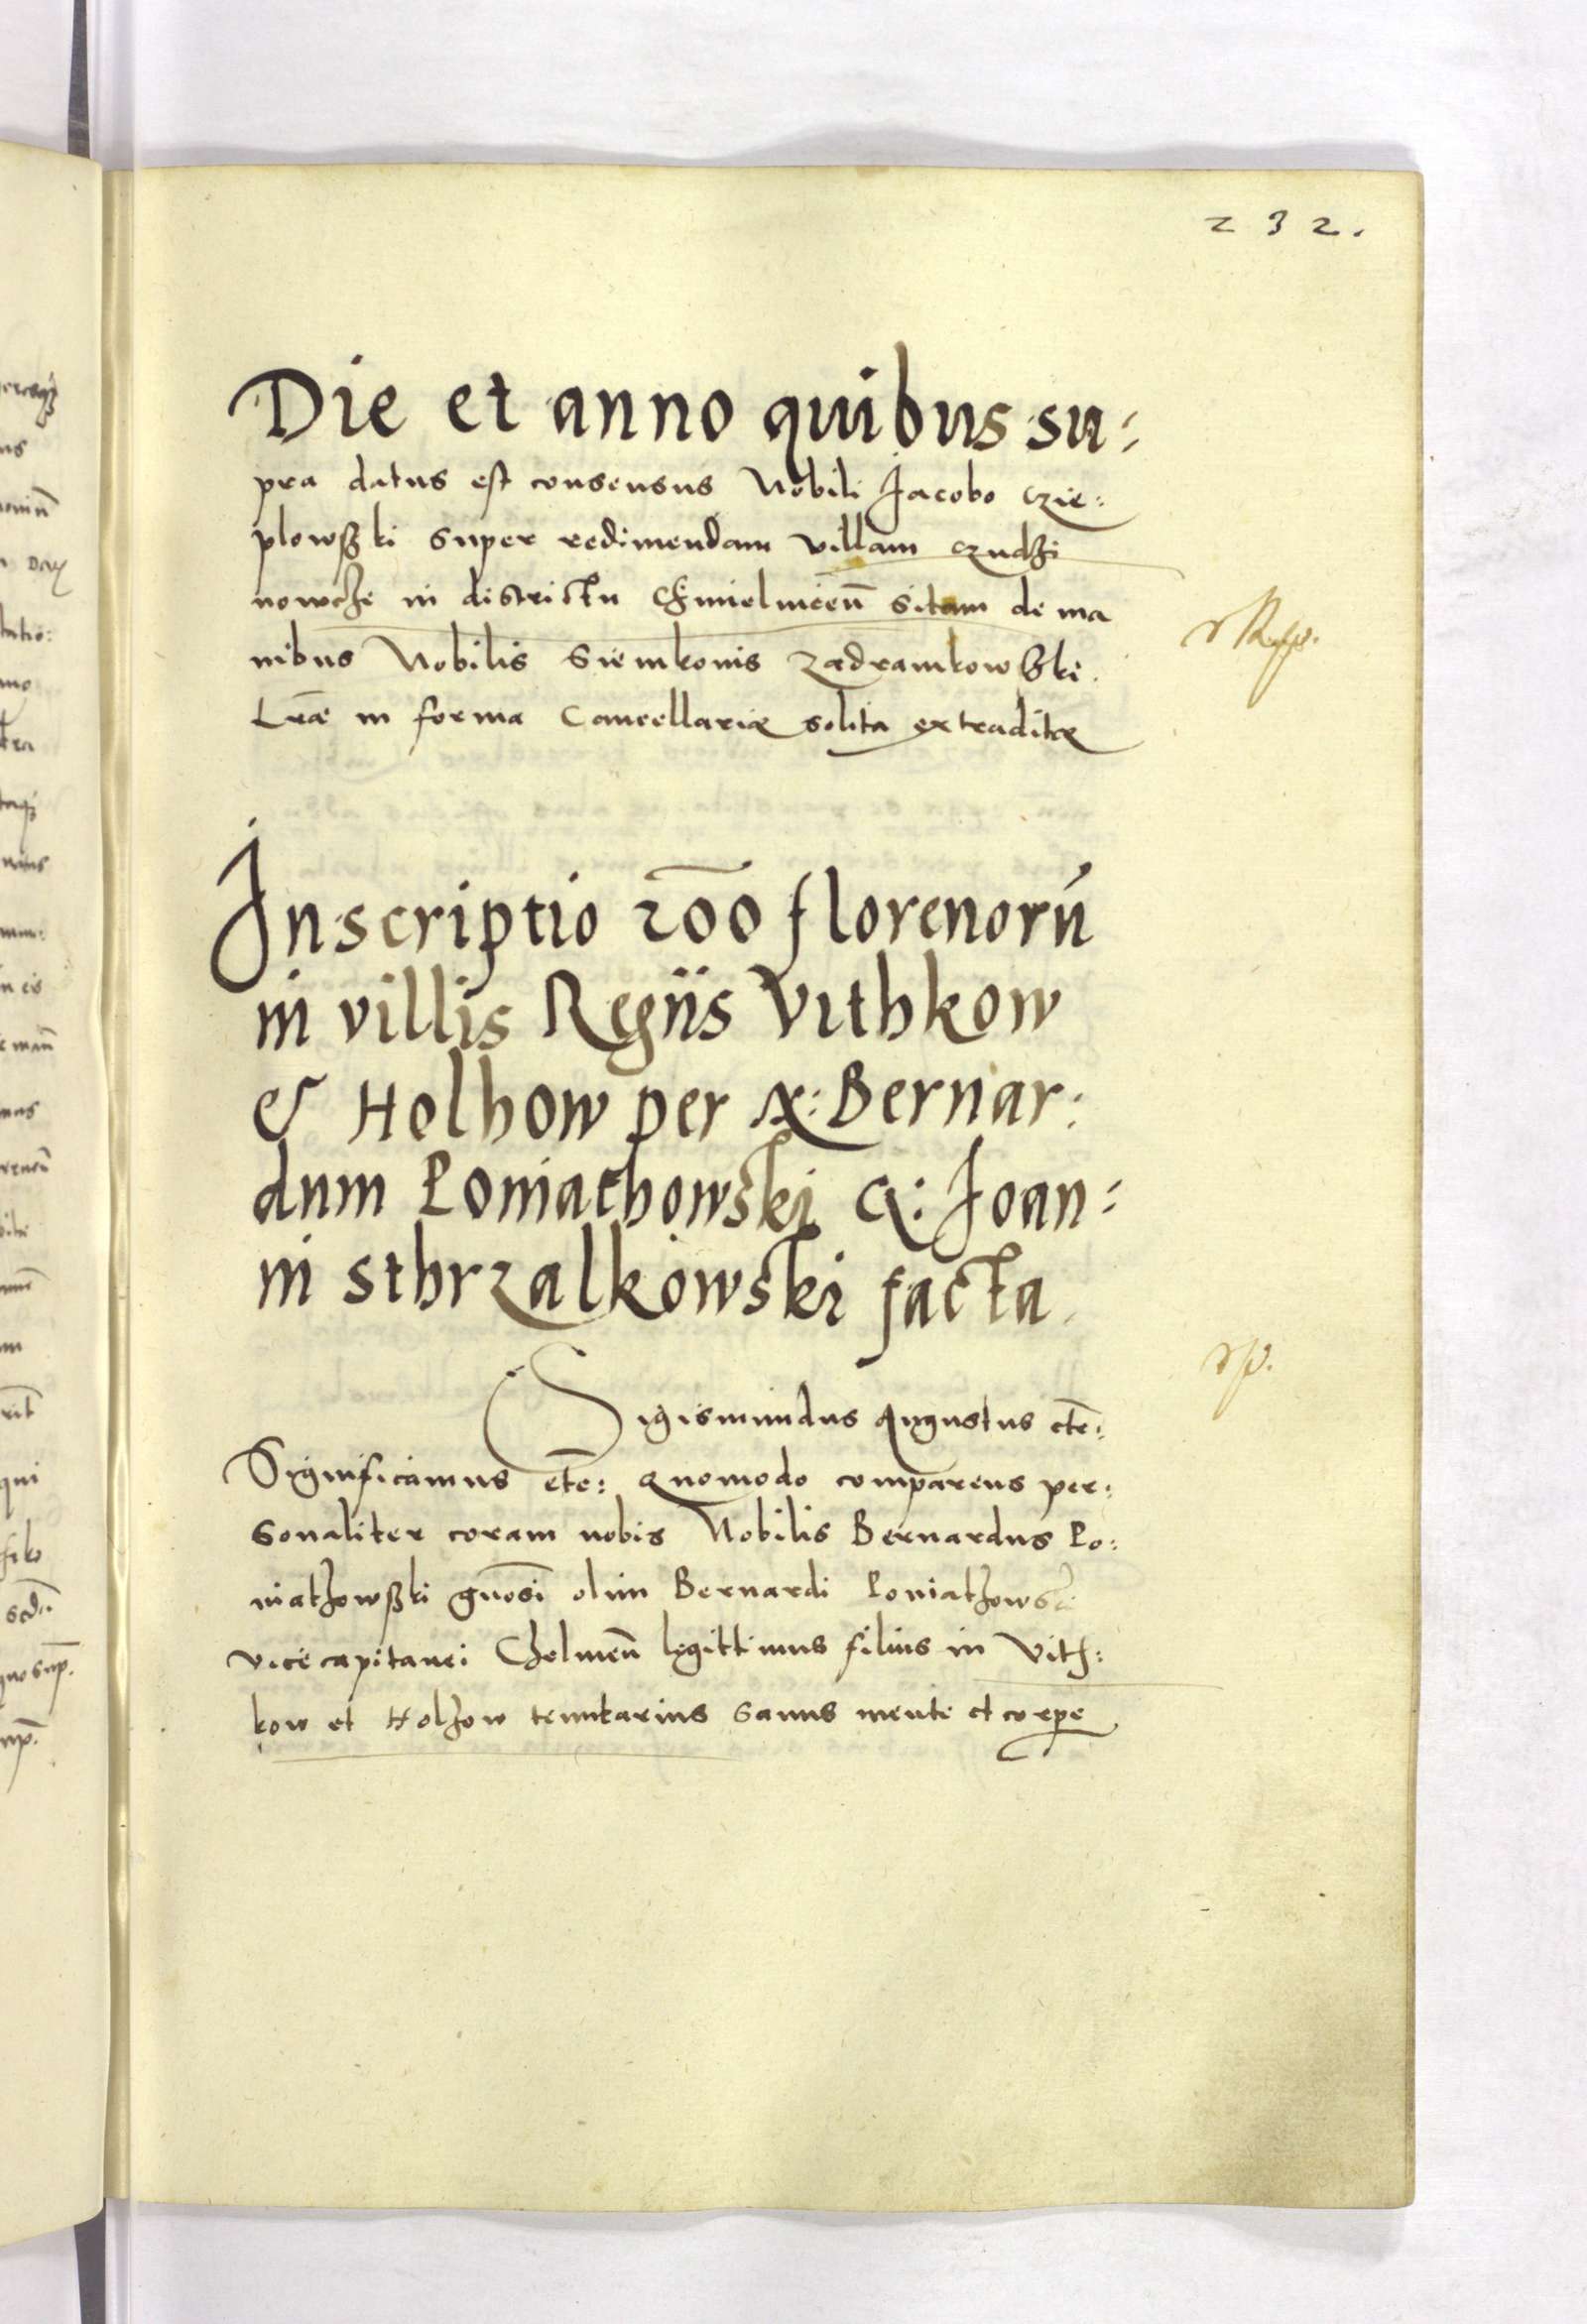 232.
Die et anno quibus su:
pra datus est consensus Nobili Jacobo Czie:
plowßki super redimendam villam Czudzi
nowcze in districtu Chmielniceñ sitam de ma
nibus Nobilis Siemkonis Zadramkowßki.
Lræ in forma Cancellariæ solita extraditæ
Inscriptio 200 florenorū
in villis Regiis Vithkow
& Holhow per N: Bernar:
dum Poniathowski N: Joan:
ni Sthrzalkowski facta.
Sigismundus Augustus etc̄:
Significamus etc̄: Quomodo comparens per:
sonaliter coram nobis Nobilis Bernardus Po:
niathowßki gnosi olim Bernardi Poniathowski
vicecapitanei Chelmeñ legittimus filius in Vith:
kow et Holhow tenutarius sanus mente et corpe